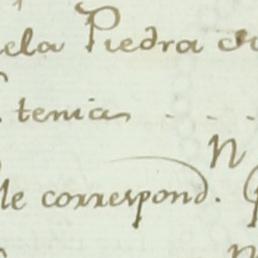 ela Piedra
tenia . . .
N
le correspond.